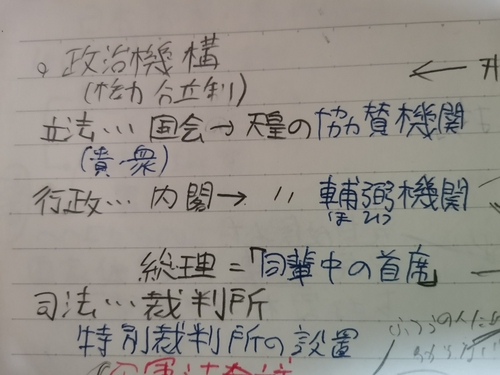 ○ 政治機構
(権力分立制)
立法… 国会→天皇の協賛機関
(貴・衆)
行政… 内閣→ 〃 輔弼機関
ほひつ
総理=「同輩中の首席」
司法… 裁判所
特別裁判所の設置
ふつうの人た